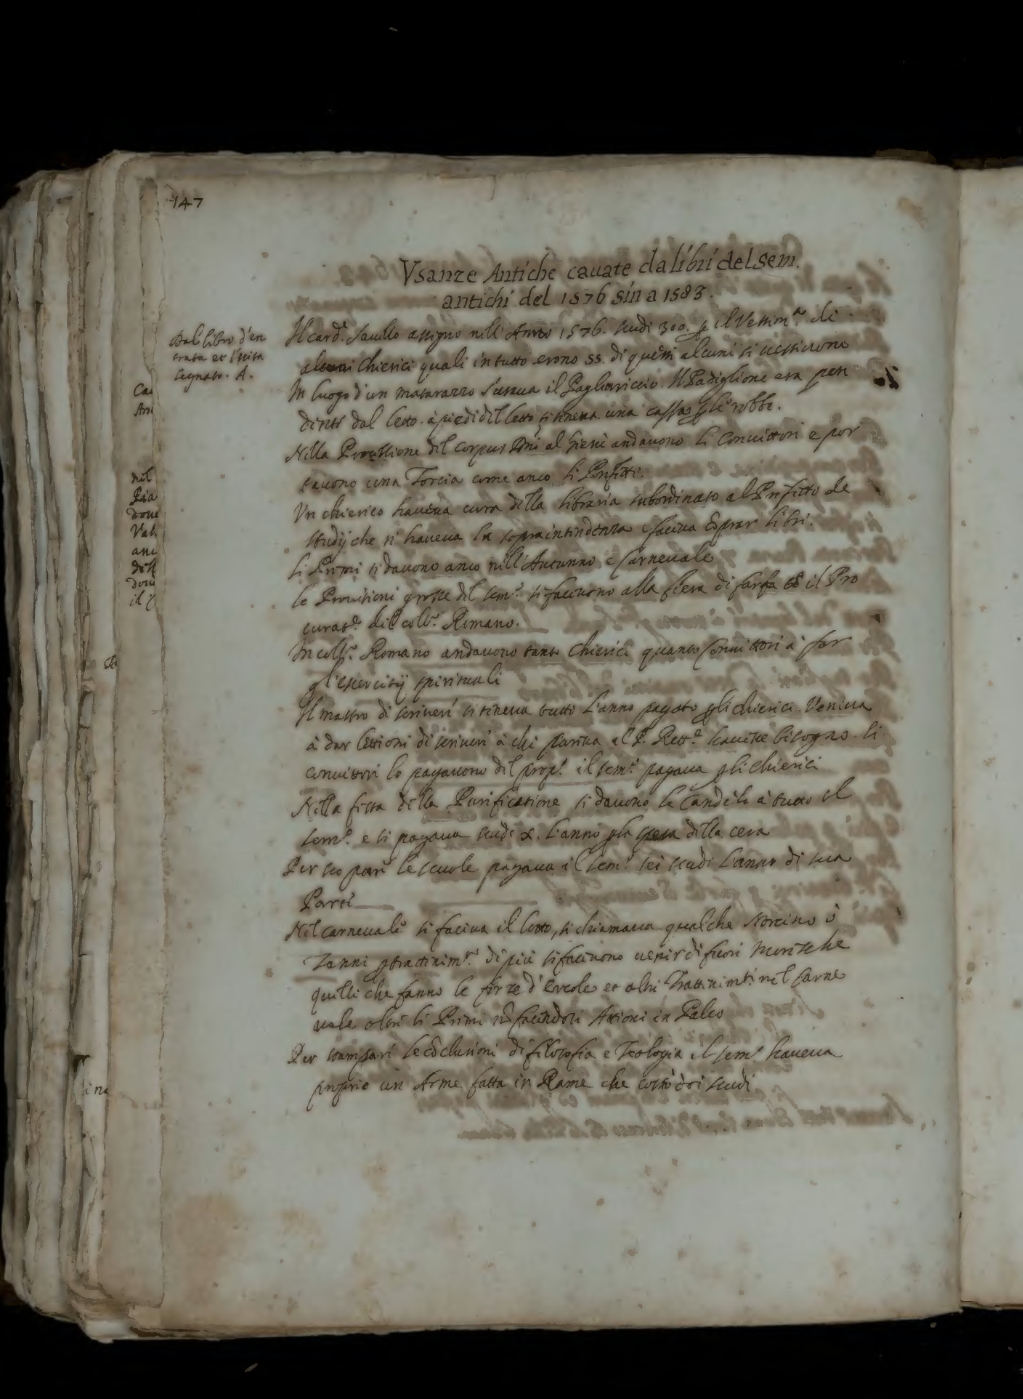 147
Vsanze Antiche cauate da libri del sem.
antichi del 1576 sin a 1583.
Dal libro d'en
trata et Uscita
segnato. A.
Il card. Sauello assigno nell'Anno 1576. scudi 300. p il Vestim.to di
alcuni Chierici quali in tutto erono 55. di questi alcuni si uestirono
In luogo d'un matarazzo s'usaua il Pagliariccio Il Padiglione era pen
dente dal letto. à piedi del letto si teneua una cassa p le robbe.
Nella Processione del corpus Dni al Giesù andauono li Conuittori e por
tauono una Torcia come anco li Prefetti.
Vn chierico haueua cura della libraria subordinato al Prefetto de
studij che ne haueua la sopraintendenza e faceua libri.
li Premi si dauono anco nell'Autunno e Carneuale
le Prouisioni grosse del sem.o si faceuono alla fiera di farfa il Pro
curat.e del coll.o Romano.
In coll.o Romano andauono tanto Chierici quanto Conuittori à far
gl'esercitij spirituali
Il mastro di scriuere si teneua tutto l'anno pagato p gli chierici. Veniua
à dar lettioni di scriuere à chi pareua al P. Rett.e hauesse bisogno. li
conuittori lo pagauono del prop.o il sem.o pagaua p gli chierici
Nella festa della Purificatione si dauono le Candele à tutto il
sem.o e si pagaua scudi x. l'anno p la spesa della cera
Per scopare le scuole pagaua il sem.o sei scudi l'anno di sua
Parte
Nel carneuale si faceua il lotto, si chiamaua qualche Norcino ò
Zanni p trattenim.to di più si faceuono uenir di fuori Moresche
quelli che fanno le forze d'Ercole et altri Trattenim.ti nel Carne
uale oltre li Premi facendosi Attioni in Palco
Per stampare le coclusioni di filosofia e Teologia il sem.o haueua
proprio un Arme fatta in Rame che costò doi scudi